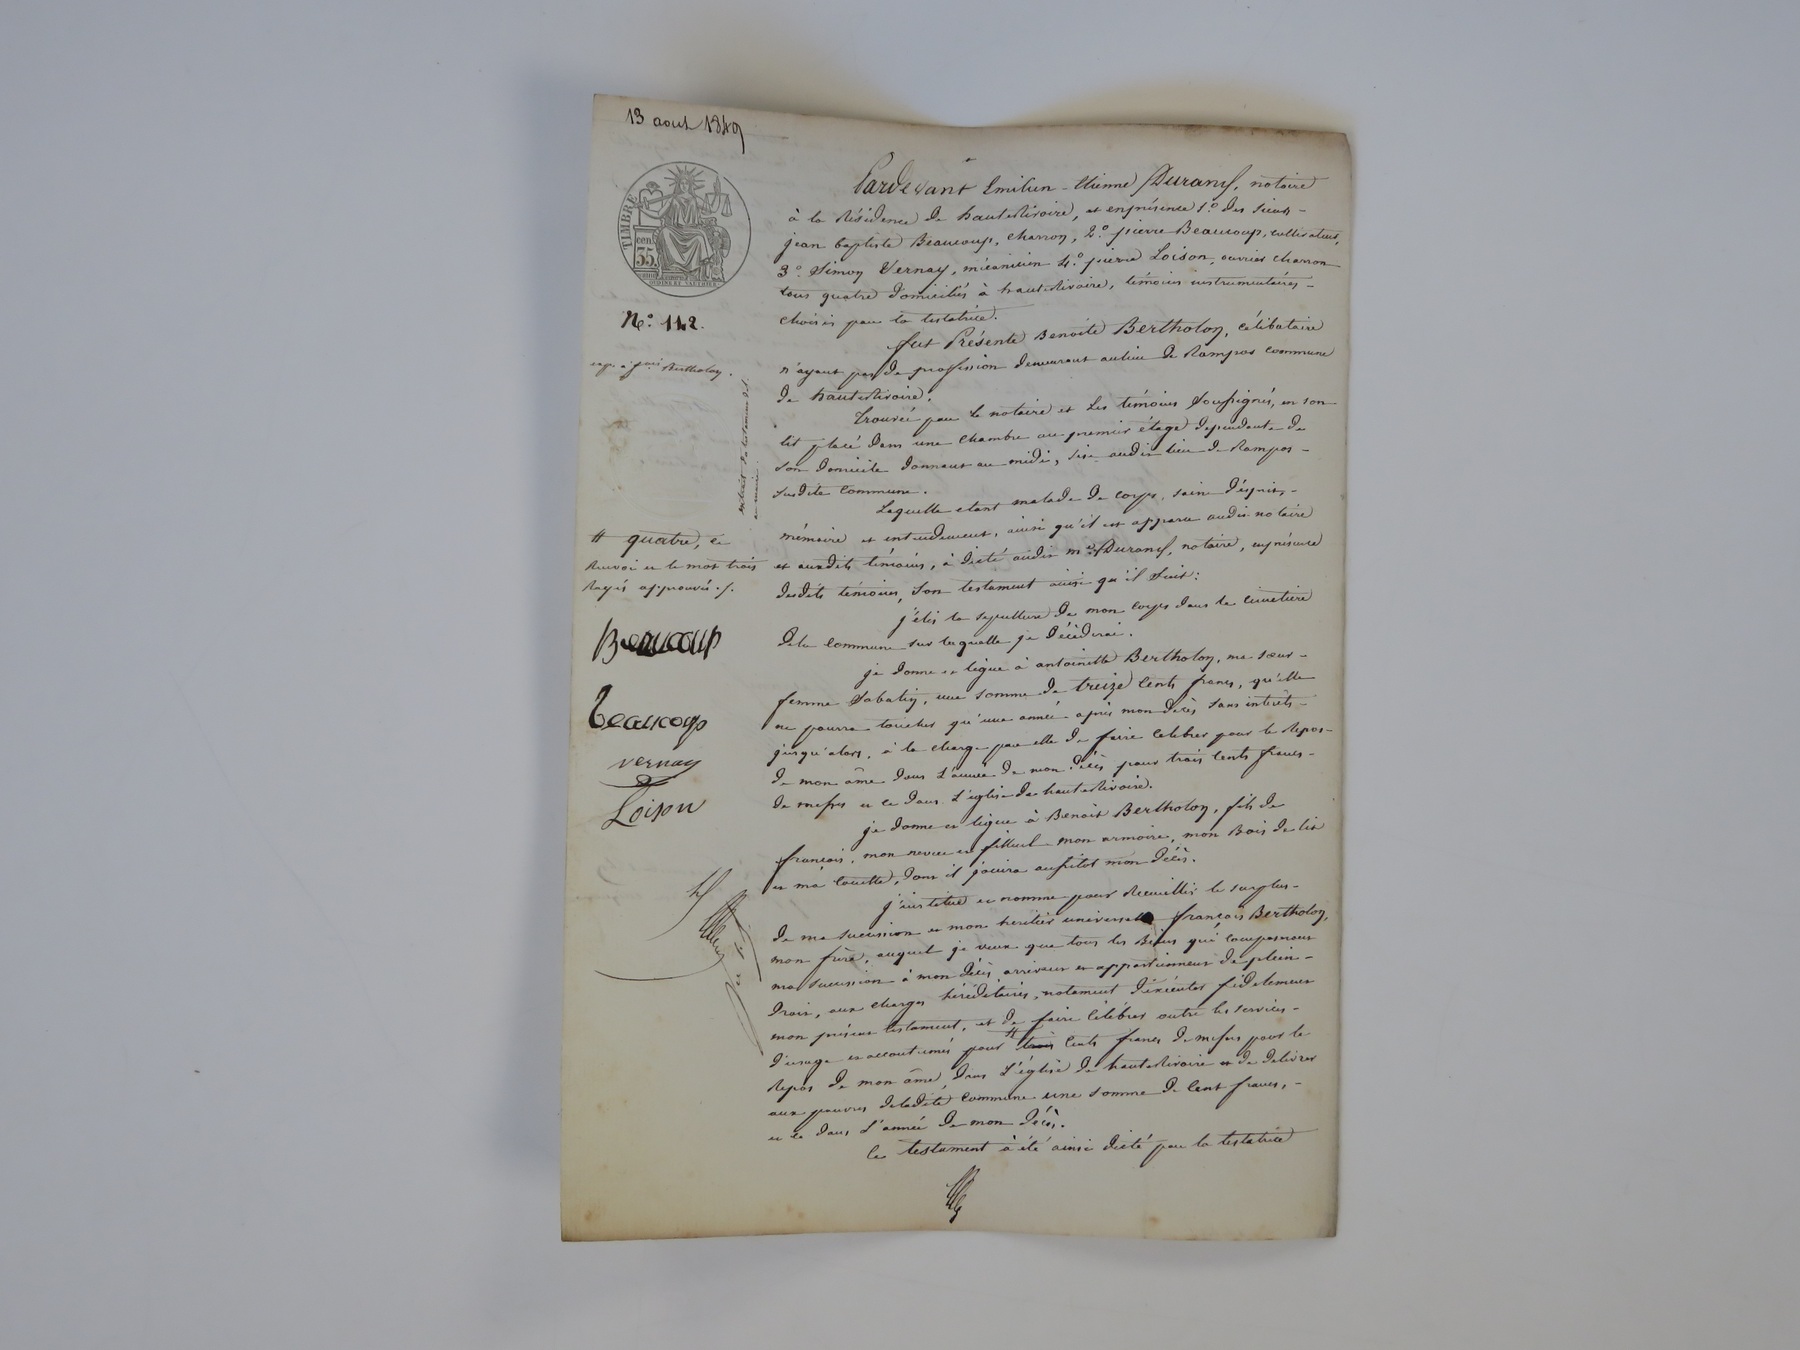 13 aout 1849
TIMBRE
cen.
35.
N.° 112.
Pardevant Emilien-Etienne Durand, notaire
à la Résidence de hauteRivoire, et enprésence 1.° des sieurs
jean baptiste Beaucoup, charron, 2.° pierre Beaucoup, cultivateur,
3.° Simon Vernay, mécanicien 4.° pierre Loison, ouvrier charron
tous quatre domiciliés à hauteRivoire, témoins instrumentaires
choisis par la testatrice.
fut Présente Benoite Bertholon, célibataire
n'ayant pas de profession demeurant aulieu de Rampos commune
de hauteRivoire.
Trouvée par le notaire et les témoins soussignés, en son
lit placé dans une chambre au premier étage dépendante de
son domicile donnant au midi, sise audit lieu de Rampos
susdite commune.
Laquelle etant malade de corps, saine d'esprit,
mémoire et entendement, ainsi qu'il est apparu audit notaire
et auxdits témoins, à dicté audit m.e Durand, notaire, enprésence
desdits témoins, son testament ainsi qu'il suit:
j'élis la sepulture de mon corps dans le cimetière
dela commune sur laquelle je décéderai.
je donne et lègue à antoinette Bertholon, ma sœur
femme Sabatin, une somme de treize cents francs, qu'elle
ne pourra toucher qu'une année après mon décès sans intérêts
jusqu'alors, à la charge par elle de faire célébrer pour le repos
de mon âme dans l'année de mon décès pour trois cents francs
de messes et ce dans l'église de hauteRivoire.
je donne et lègue à Benoit Bertholon, fils de
françois, mon neveu et filleul mon armoire, mon Bois de lit
et ma couette, dont il jouira aussitot mon décès.
j'institue et nomme pour Recueillir le surplus
de ma sucession et mon heritier universel françois Bertholon,
mon frère, auquel je veux que tous les Biens qui composeront
ma sucession à mon décès arrivent et appartiennent de plein
droit, aux charges héréditaires, notament d'éxécuter fidelement
mon présent testament, et de faire célébrer outre les services
d'usage et accoutumés pour # trois cents francs de messes pour le
Repos de mon âme, dans l'église de hauteRivoire et de delivrer
aux pauvres deladite commune une somme de cent francs,
et ce dans l'année de mon décès.
Ce testament à été ainsi dicté par la testatrice
# quatre, ce
Renvoi et le mot trois
Rayés approuvés ./.
Beaucoup
Beaucoup
vernay
Loison